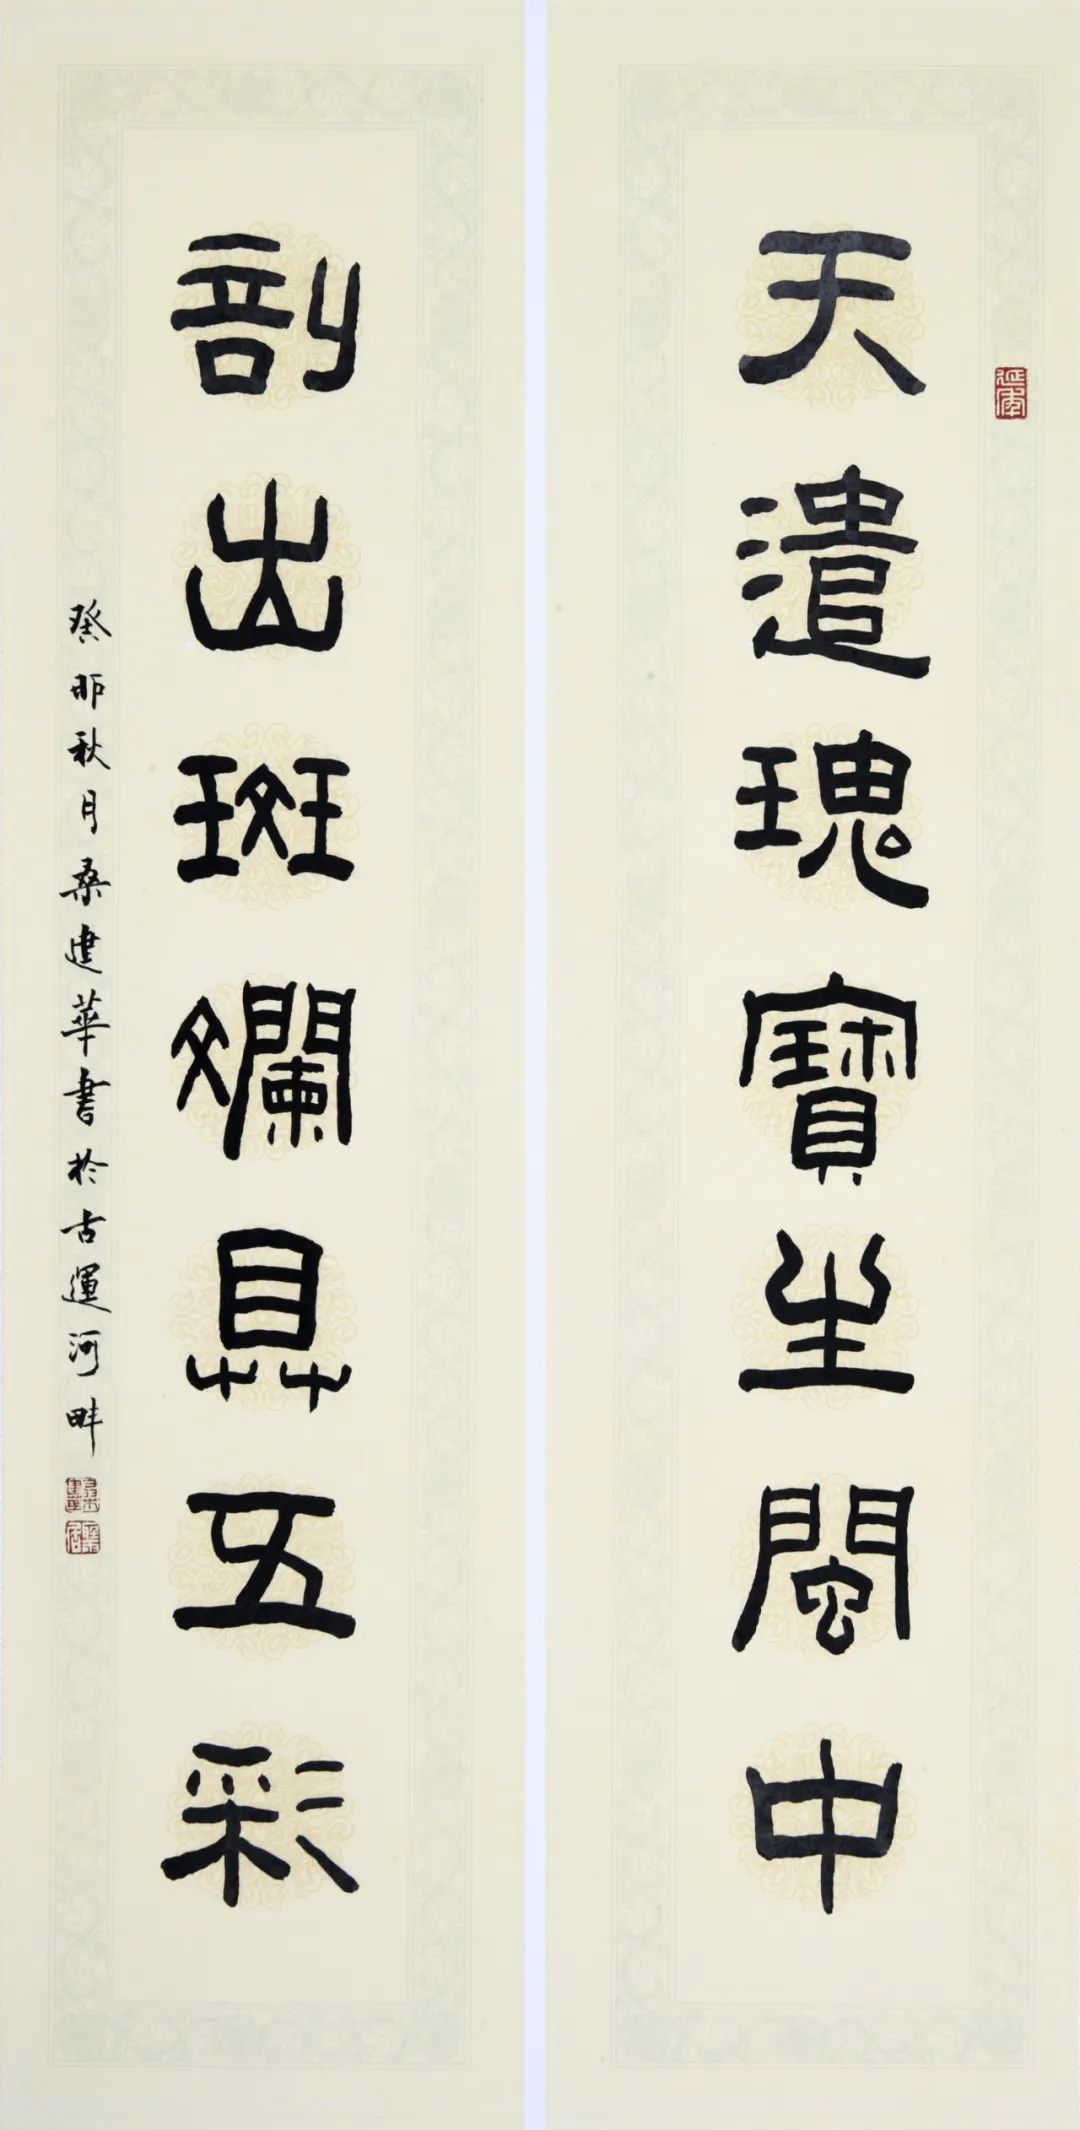 天遣瑰寶生閩中
剖出斑斕具五彩
癸卯秋月桑建華書於古運河畔
延年